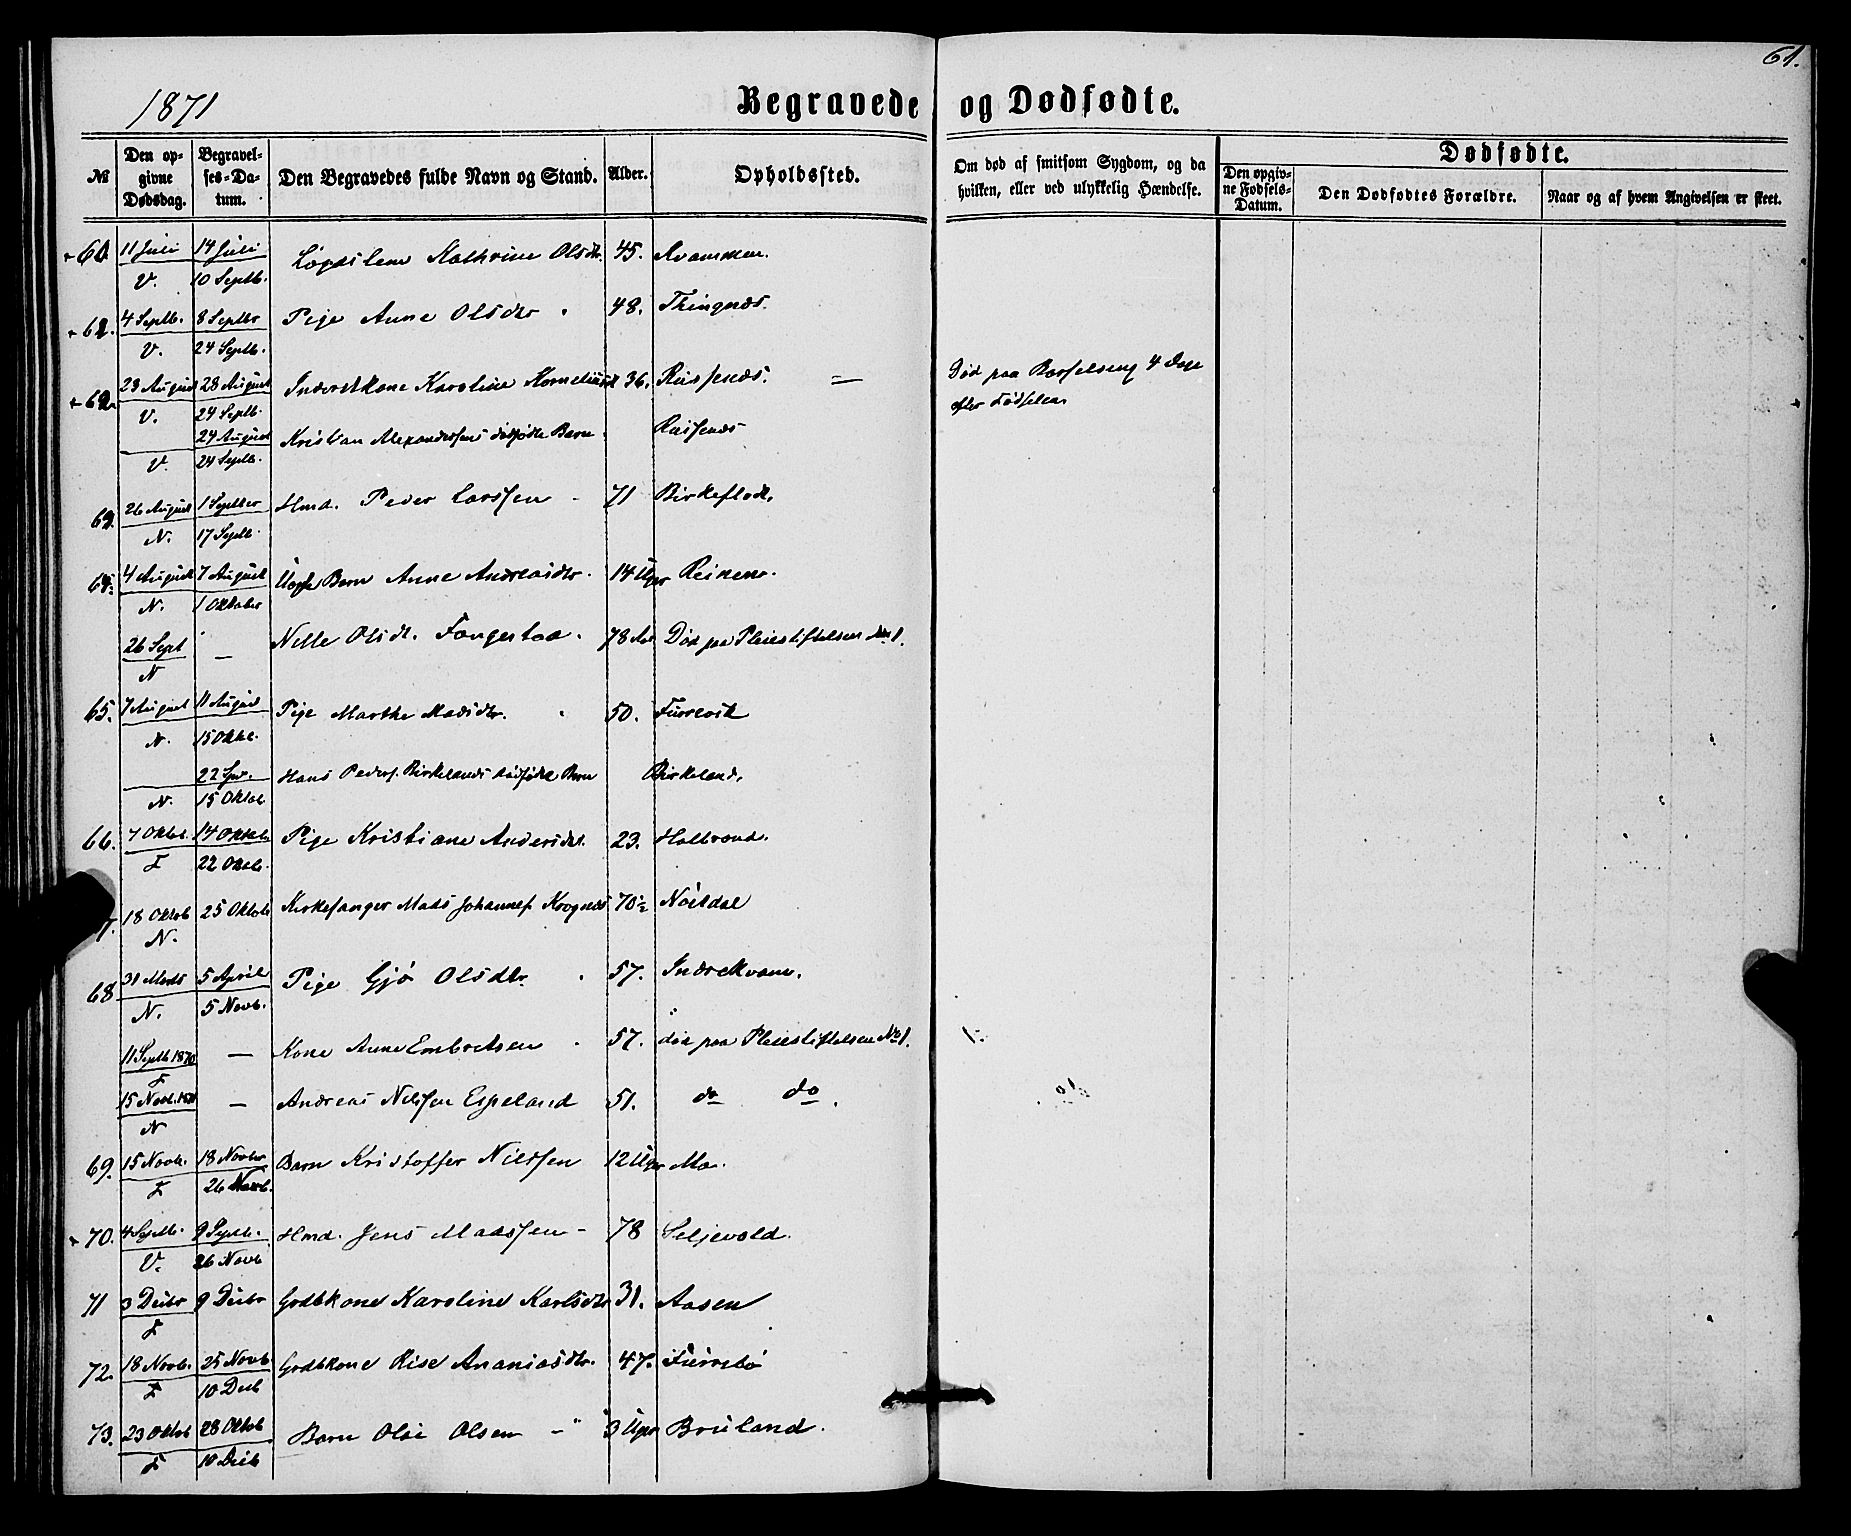 1871
Begravede og Dødfødte.
61.
№
Den opgivne Dødsdag.
Begravelses-Datum.
Den Begravedes fulde Navn og Stand.
Alder.
Opholdssted.
Om død af smitsom Sygdom, og da hvilken, eller ved ulykkelig Hændelse.
Dødfødte.
Den opgivne Fødsels-Datum.
Den Dødfødtes Forældre.
Naar og af hvem Angivelsen er skeet.
+ 60 11 Juli 14 Juli Kathrine Olsdtr. 45. Kvammen.
V. 10 Septb.
+ 61. 4 Septb. 8 Septbr Pige Anne Olsdtr 48. Thingnæs.
V. 24 Septb.
+ 62. 23 August 28 August Inderstkone Karoline 36. Risnæs. Død paa Barselseng 4 Dage
V. 24 Septb. efter Fødselen
24 August Kristian Alexandersens dødfødte Barn Risnæs
V. 24 Septb.
63. 26 August 1 Septber Hmd. Peder Larssen 71 Birkeflot.
N. 17 Septb
64. 4 August 7 August Uægte Barn Anne Andreasdtr. 14 Uger Reinene.
N. 1 Oktober
26 Sept — Nille Olsdt. 78 Aar Død paa Pleiestiftelsen No 1.
N
65. 7 August 11 August Pige Marthe Madsdtr. 50. Furevik
N. 15 Oktb.
22 Hans Peders. Birkelands dødfødte Barn Birkeland.
N. 15 Oktob.
66. 7 Oktob. 14 Oktob. Pige Kristiane Andersdt. 23. Holbrand.
F 22 Oktob.
7. 18 Oktob 25 Oktob Kirkesanger Mads Johannes. Krognæs 70½ Nøstdal
N.
68 31 Marts 5 April Pige Gjø Olsdtr. 57. Indrekvam.
N. 5 Novb.
11 Septb 1870 — Kone Anne Embretsen 57. død paa Pleiestiftelsen No 1.
F
15 Novb. 1870 — Andreas Nilssen Espeland 51. do do.
N
69. 15 Novb. 18 Novbr Barn Kristoffer Nilssen 12 Uger Mo.
F 26 Novb.
+ 70. 4 Septb. 9 Septb. Hmd. Jens Madssen 78 Seljevold.
V. 26 Novb
71 3 Decbr 9 Decbr Grdbkone Karoline Karlsdtr 31. Aasen
F
72. 18 Novb. 25 Novb Grdbkone Rise Ananiasdtr. 47. Furrebø
F 10 Decb
73. 23 Oktob 28 Oktob Barn Olai Olsen 3 Uger Bruland.
F 10 Decb